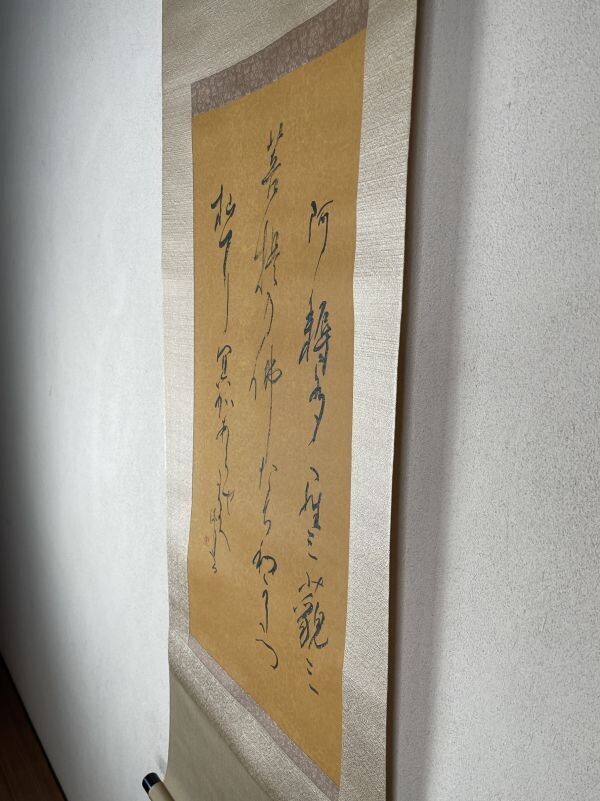 阿耨多羅三藐三
菩提の佛たちわがたつ
杣に冥加あらせ